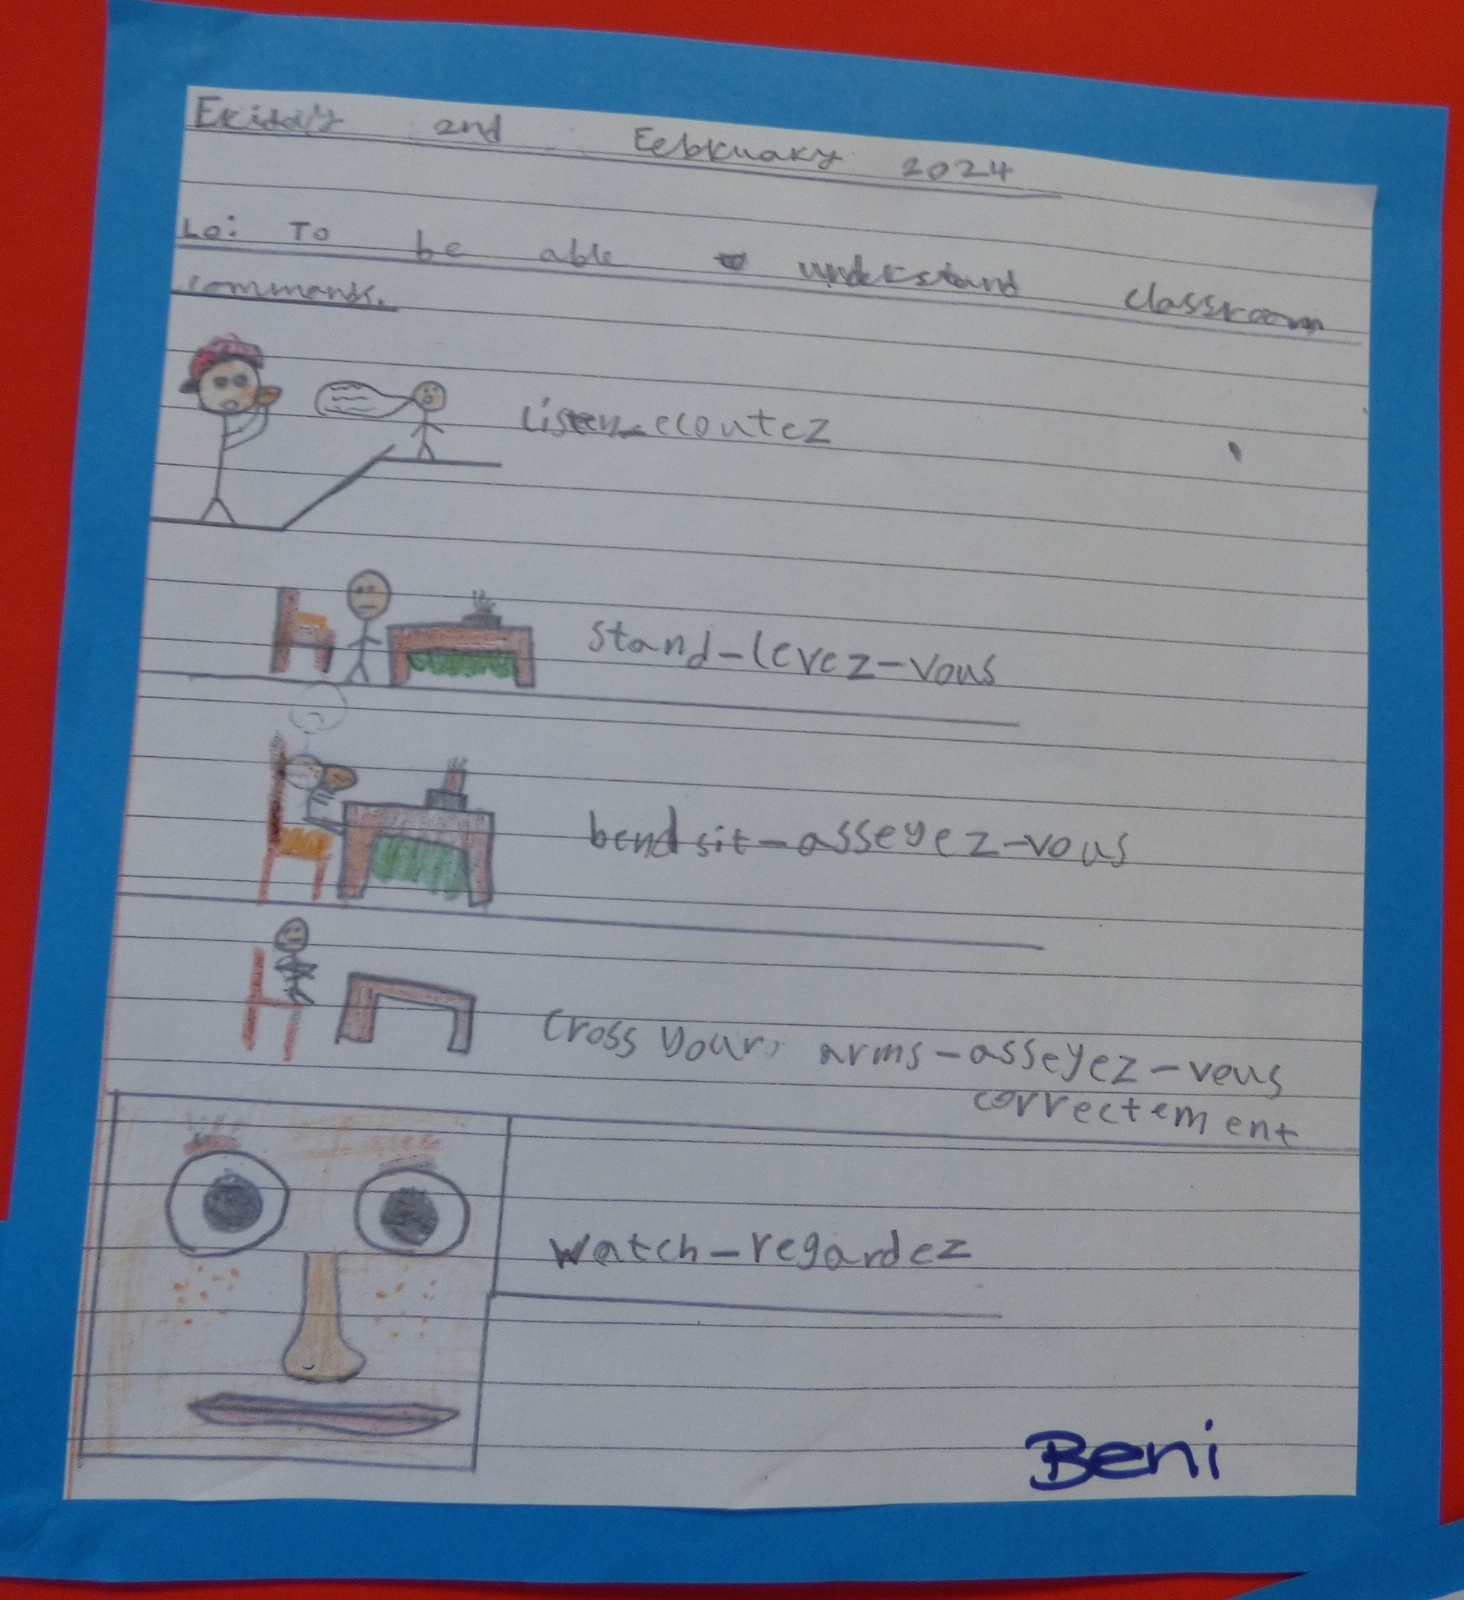 Friday 2nd February 2024
Lo: To be able to understand classroom
commands.
Listen-ecoutez
stand-levez-vous
bend sit-asseyez-vous
cross your arms-asseyez-vous
correctement
watch-regardez
Beni